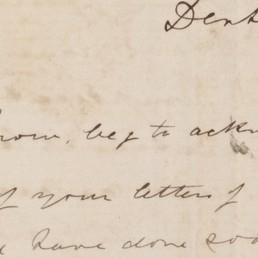 Dent
from, beg to ackn
of your letters of
have done soo